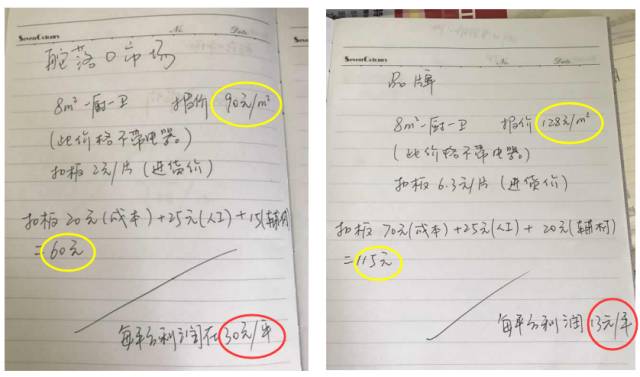 SevenColours No. Date
舵落口市场
8m²一厨一卫 报价 90元/m²
(此价格不带电器。)
扣板 2元/片 (进货价)
扣板 20元(成本)+25元(人工)+15(辅材)
=60元
每平方利润在30元/平
SevenColours No. Date
品牌
8m²一厨一卫 报价 128元/m²
(此价格不带电器。)
扣板 6.3元/片 (进货价)
扣板 70元(成本)+25元(人工)+20元(辅材)
=115元
每平方利润 13元/平